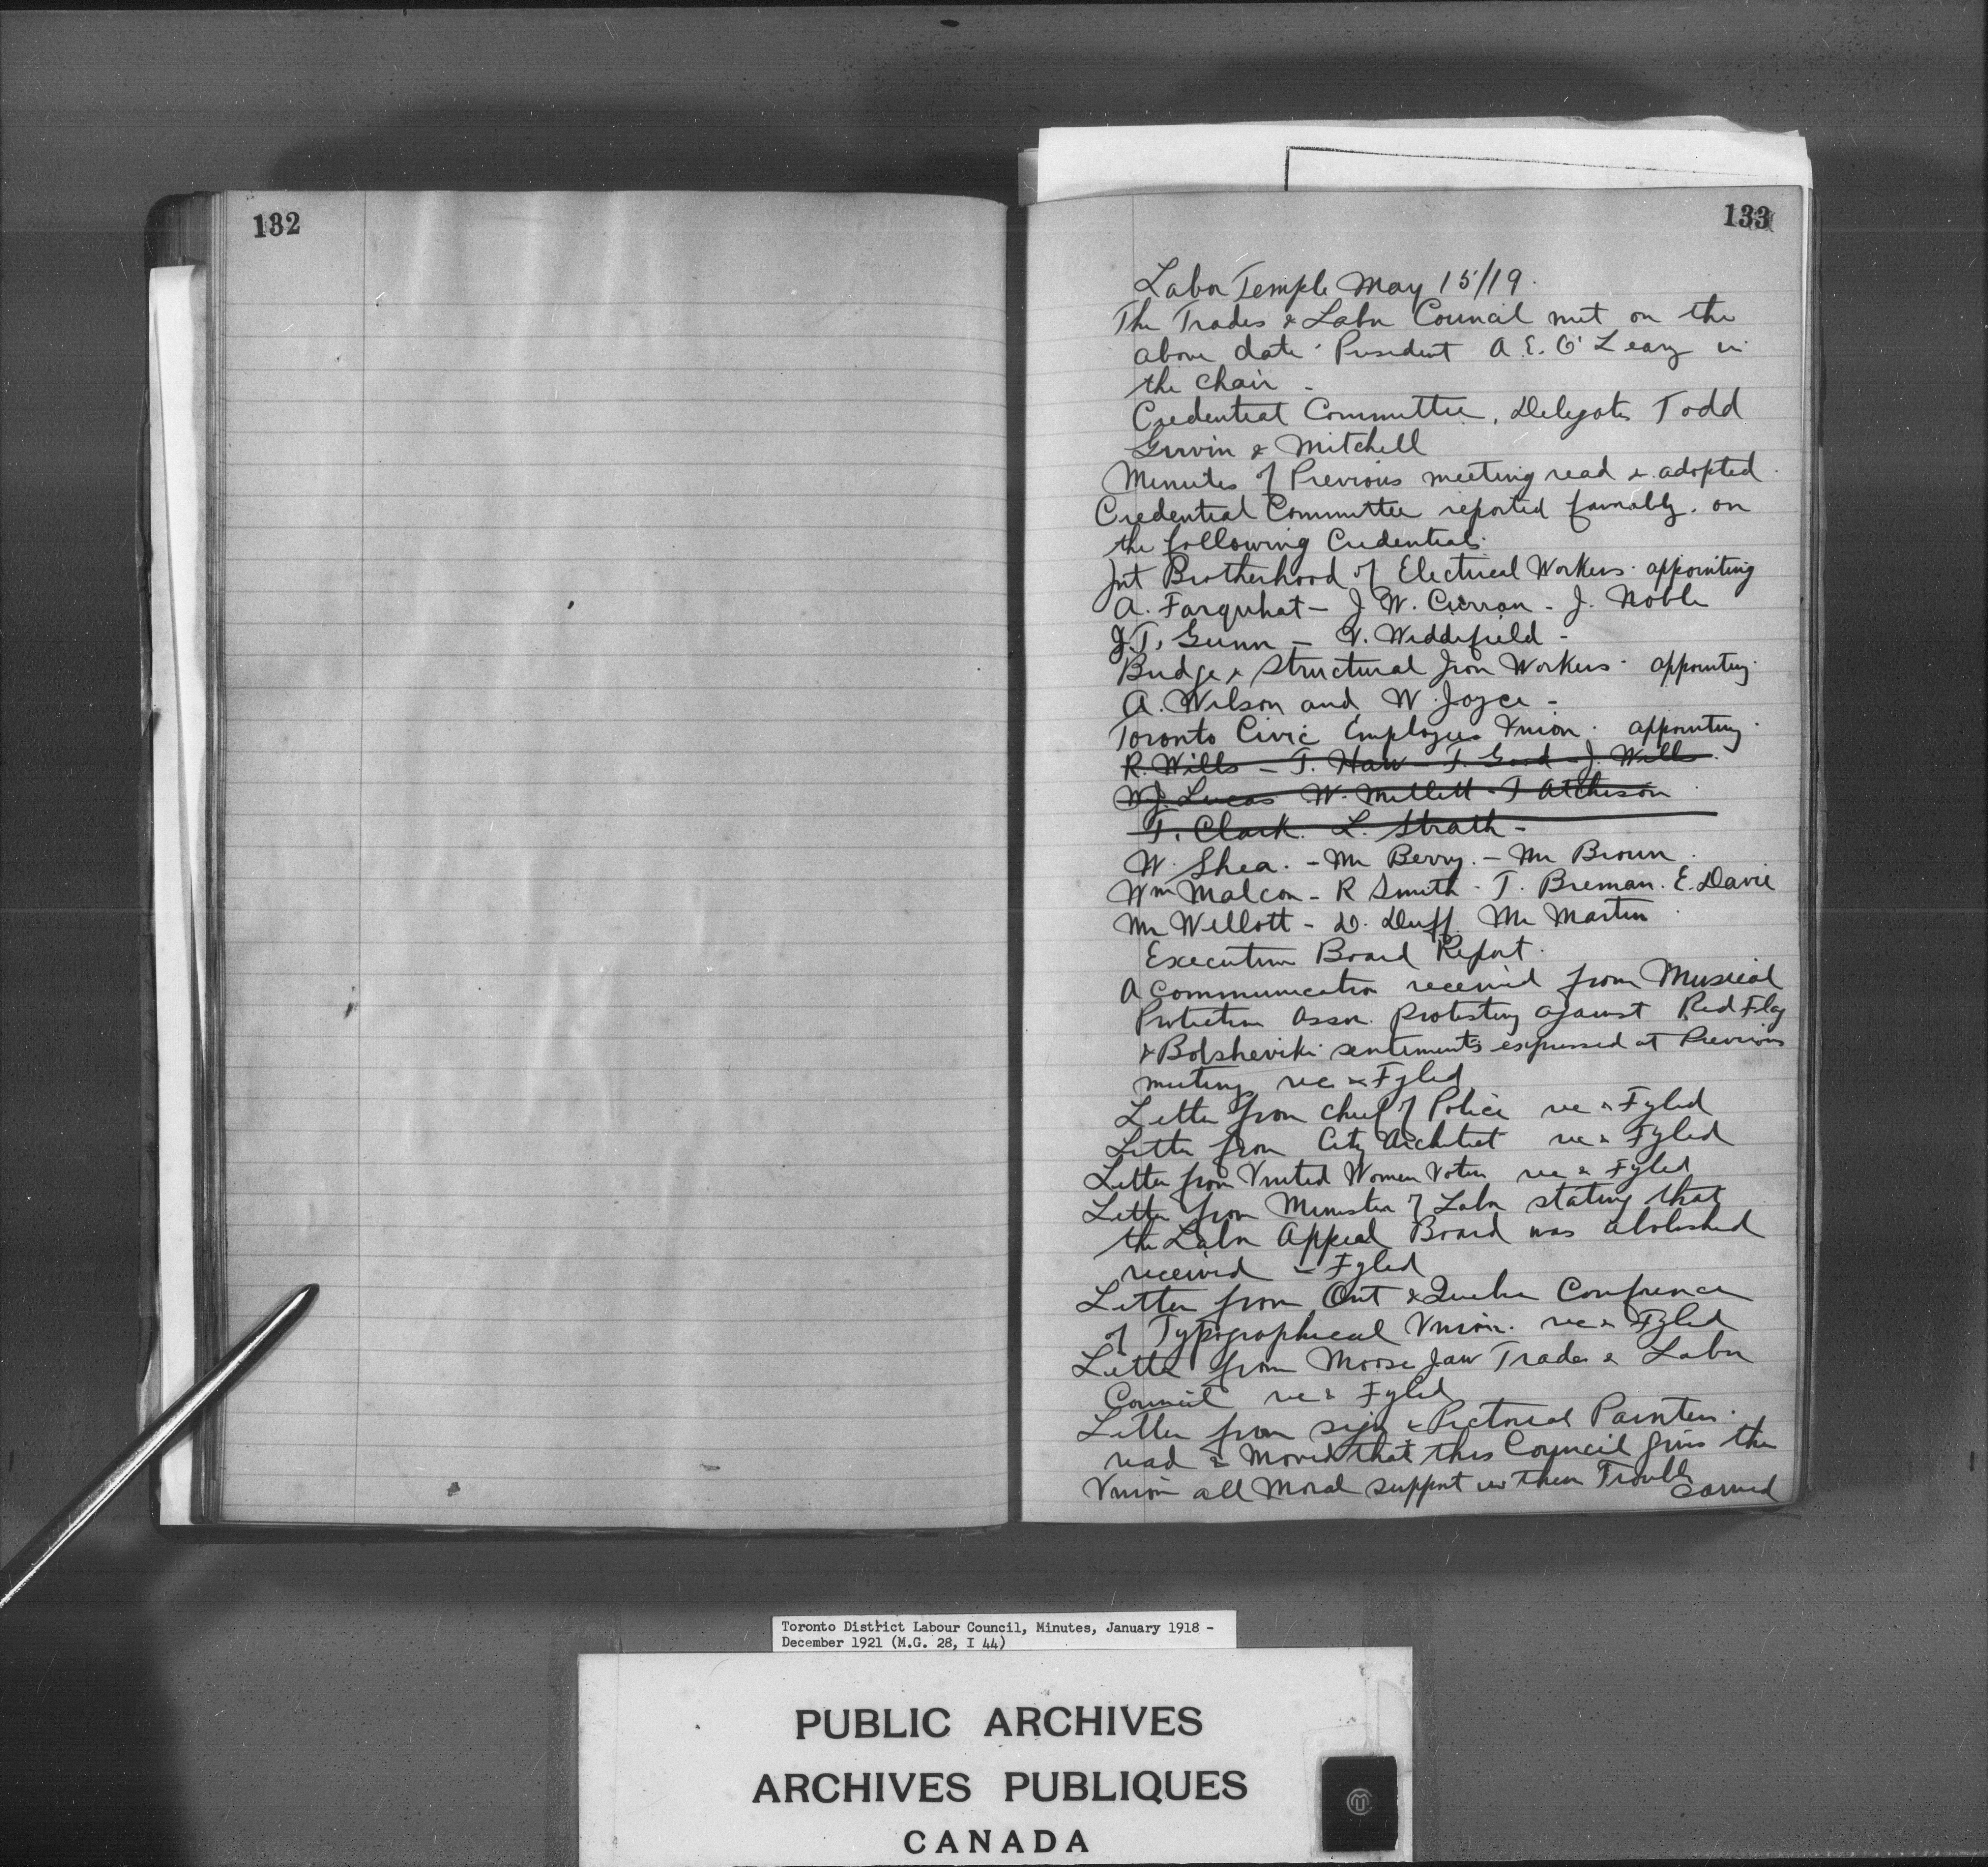 132
133
Labor Temple May 15/19.
The Trades & Labor Council met on the
above date. President A. E. O'Leary in
the chair -
Credential Committee, Delegates Todd
Girvin & Mitchell
Minutes of Previous meeting read & adopted.
Credential Committee reported favorably. on
the following Credentials.
Int Brotherhood of Electrical Workers. appointing
A. Farquhat - J. W. Curran - J. Noble
J. T. Gunn - V. Widdifield -
Bridge & Structural Iron Workers. appointing.
A. Wilson and W. Joyce -
Toronto Civic Employees Union. appointing.
R. Wills - T. Haw - F. Good - J. Wills.
W. J. Lucas W. Millett - T Atcheson
T. Clark. L. Strath -
W. Shea. - Mr Berry. - Mr Brown.
Wm Malcon - R Smith - T. Breman. E. Davie
Mr Willott - D. Duff. Mr Martin.
Executive Board Report.
A communication received from Musical
Protective Assn. Protesting against Red Flag
& Bolsheviki sentiments expressed at Previous
meeting rec & Fyled
Letter from Chief of Police rec & Fyled
Letter from City Architect rec & Fyled
Letter from United Women Voters rec & Fyled
Letter from Minister of Labor stating that
the Labor Appeal Board was abolished
received & Fyled
Letter from Ont & Quebec Conference
of Typographical Union. rec & Fyled
Letter from Moose Jaw Trades & Labor
Council rec & Fyled
Letter from Sign & Pictorial Painters.
read & Moved that this Council give the
Union all Moral support in their Trouble
carried
Toronto District Labour Council, Minutes, January 1918 -
December 1921 (M.G. 28, I 44)
PUBLIC ARCHIVES
ARCHIVES PUBLIQUES
CANADA